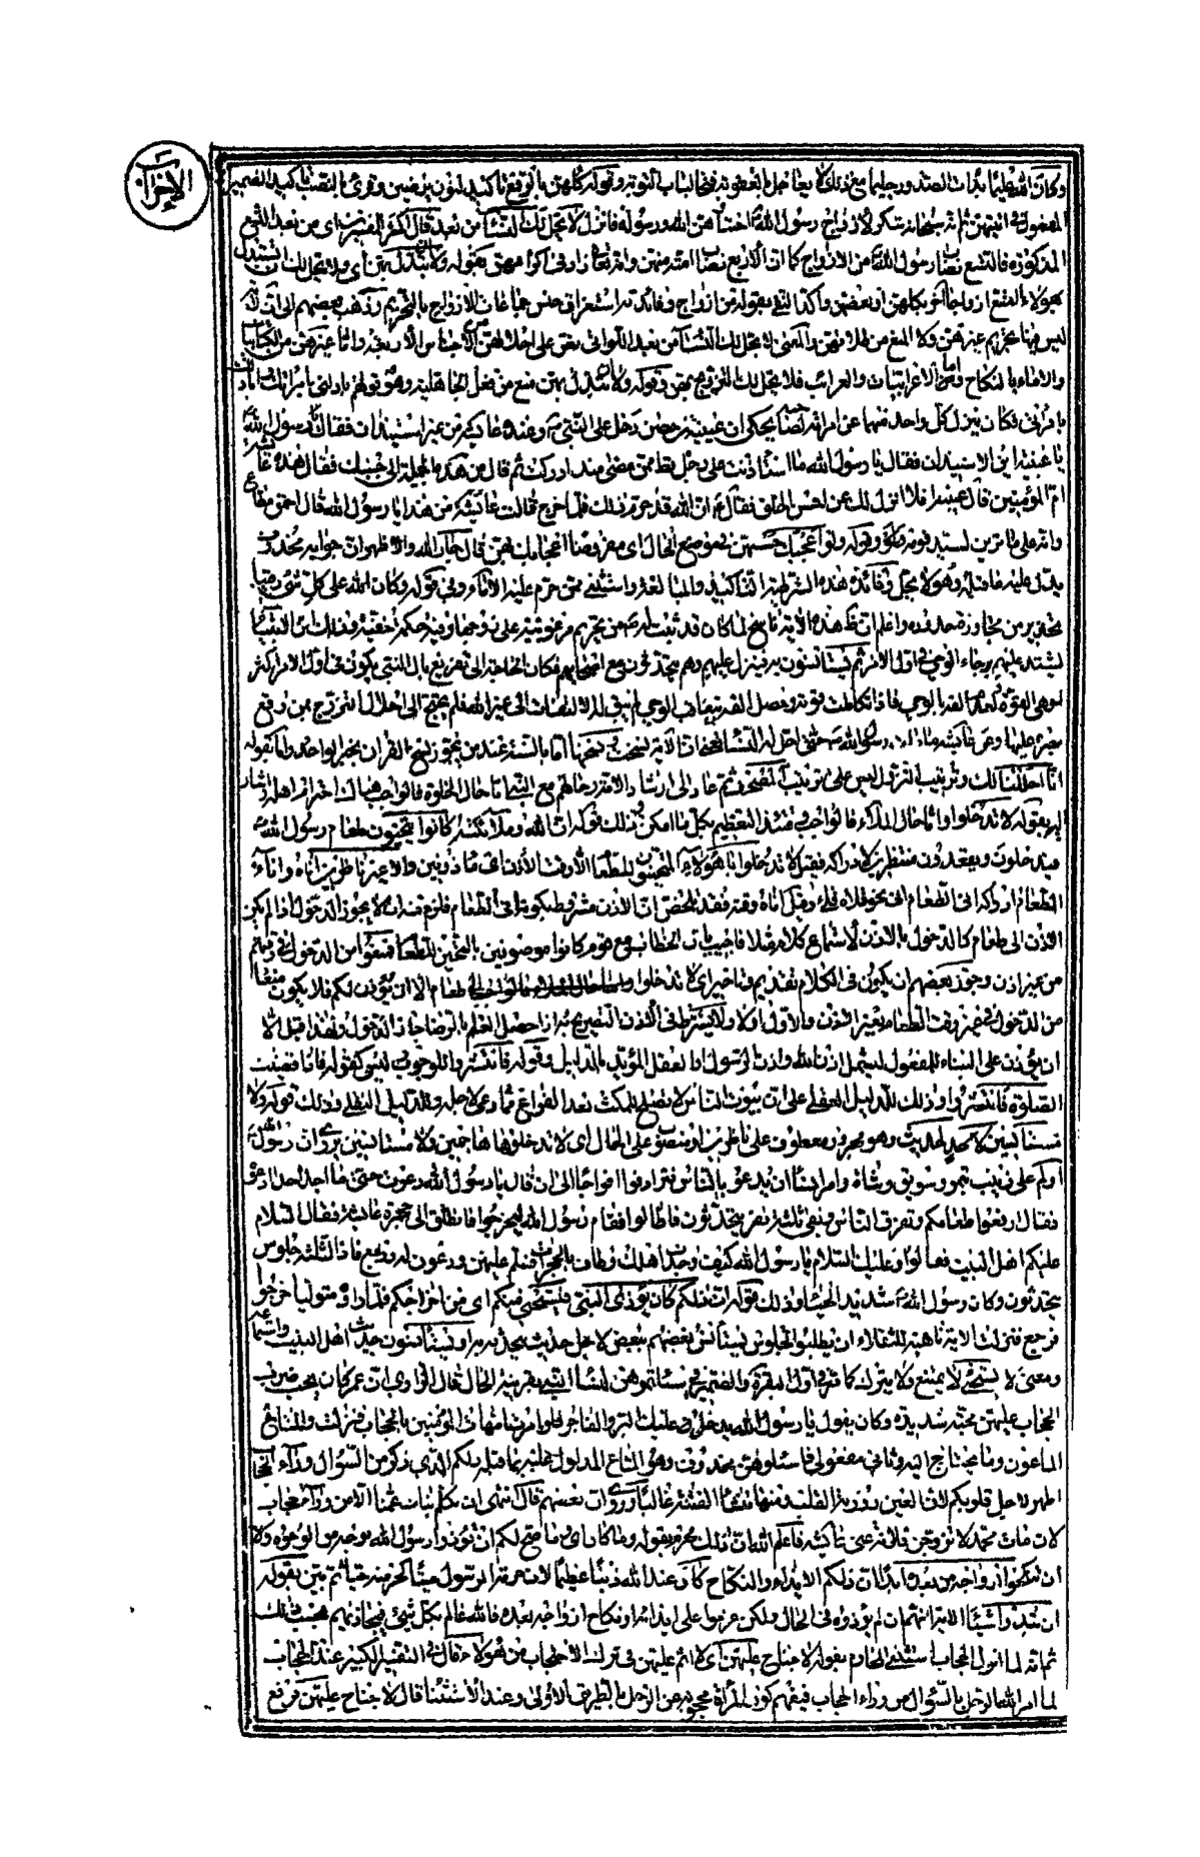 الاحزاب
وكان الله عليما بذات الصدور حليما مع ذلك لا يعاجل بالعقوبة فتح الباب التوبة وقوله كلهن بالرفع تاكيد لنون يرضين وقرئ بالنصب تاكيد الضمير
المفعول في اتيتهن ثم انه سبحانه شكر لازواج رسول الله اختيارهن الله ورسوله فانزل لا يحل لك النساء من بعد قال اكثر المفسرين اى من بعد التسع
المذكورة فالتسع نصاب رسول الله من الازواج كما ان الاربع نصاب امته منهن وانه تعالى زاد في اكرامهن بقوله ولا ان تبدل بهن اى ولا يحل لك ان تستبدل
بهؤلاء التسع ازواجا اخر بكلهن او بعضهن واكد النفي بقوله من ازواج وفائدته استغراق جنس جماعات الازواج بالتحريم وذهب بعضهم الى ان
ليس فيها تحريم غيرهن ولا المنع من طلاقهن والمعنى لا يحل لك النساء من بعد اللواتي نص على احلالهن من الاجناس الاربعة واما غيرهن من الكتابيات
والاماء بالنكاح والاعرابيات والغرائب فلا يحل لك التزوج بهن وقوله ولا ان تبدل بهن منع من فعل الجاهلية وهو قولهم بادلني بامراتك ابادلك
بامراتي فكان ينزل كل واحد منهما عن امراته لصاحبه يحكى ان عيينة بن حصن دخل على النبي وعنده عائشة من غير استيذان فقال رسول الله
يا عيينة اين الاستيذان فقال يا رسول الله ما استأذنت على رجل قط ممن مضى منذ ادركت ثم قال من هذه الجميلة الى جنبك فقال هذه عائشة
ام المؤمنين قال عيينة افلا انزل لك عن احسن الخلق فقال ان الله قد حرم ذلك فلما خرج قالت عائشة من هذا يا رسول الله قال احمق مطاع
وانه على ما ترين لسيد قومه وقوله ولو اعجبك حسنهن في موضع الحال اى مفروضا اعجابك بهن قال جار الله والاظهر ان جوابه محذوف
يدل عليه ما قبله وهو لا يحل وفائدة هذه الشرطية التاكيد والمبالغة واستثنى ممن حرم عليه الاماء وفي قوله وكان الله على كل شئ رقيبا
تحذير من مجاوزة حدوده واعلم ان ظاهر هذه الاية ناسخ لما كان قد ثبت له من تحريم مرغوبته على زوجها وفيه حكمة خفية وذلك ان الانبياء
يشتد عليهم برحاء الوحي في اول الامر ثم يستأنسون به فينزل عليهم وهم يتحدثون مع اصحابهم فكان الحاجة الى تفريغ بال النبي يكون في اول الامر اكثر
لوهى القوة ولعدم الفه بالوحي فاذا تكاملت قوته وحصل الفه بتعاقب الوحي لم يبق له الالتفات الى غير الله فلم يحتج الى احلال التزوج بمن وقع
بصره عليها وعن عائشة ما مات رسول الله حتى احل له النساء
انا احللنا لك وترتيب النزول ليس على ترتيب المصحف ثم عاد الى ارشاد الامة وحالهم مع النبي اما حال الخلوة فالواجب هناك احترام اهله واشار
اليه بقوله لا تدخلوا واما حال الملأ فالواجب وقتئذ التعظيم بكل ما امكن وذلك قوله ان الله وملائكته كانوا يتحينون طعام رسول الله
فيدخلون ويقعدون منتظرين لادراكه فقيل لا تدخلوا يا هؤلاء المتحينون للطعام الا وقت الاذن اى مأذونين والا غير ناظرين اناه واناء
الطعام ادراكه انى الطعام انى نحو قلاه قلى وقيل اناه وقته فقد تلخص ان الاذن مشروط بكونه الى الطعام فلزم منه ان لا يجوز الدخول اذا لم يكن
الاذن الى طعام كالدخول بالاذن لاستماع كلام مثلا فاجيب بان الخطاب مع قوم كانوا موصوفين بالتحين للطعام فمنعوا من الدخول في وقتهم
من غير اذن وجوز بعضهم ان يكون في الكلام تقديم وتاخير اى لا تدخلوا الى طعام الا ان يؤذن لكم فلا يكون منعا
من الدخول في غير وقت الطعام بغير الاذن والاول اولى ولا يشترط في الاذن التصريح به اذا حصل العلم بالرضا جاز الدخول ولهذا قيل الا
ان يؤذن على البناء للمفعول ليشمل اذن الله واذن الرسول او العقل المؤيد بالدليل وقوله فانتشروا للوجوب ليس كقوله فاذا قضيت
الصلوة فانتشروا وذلك للدليل العقلي على ان بيوت الناس لا تصلح للمكث بعد الفراغ مما دعى لاجله وللدليل النقلي وذلك قوله ولا
مستأنسين لحديث وهو مجرور معطوف على ناظرين او منصوب على الحال اى لا تدخلوها هاجمين ولا مستأنسين يروى ان رسول الله
اولم على زينب بتمر وسويق وشاة وامر انسا ان يدعو بالناس فترادفوا افواجا الى ان قال يا رسول الله دعوت حتى ما اجد احدا ادعوه
فقال ارفعوا طعامكم وتفرق الناس وبقي ثلثة نفر يتحدثون فاطالوا فقام رسول الله ليخرجوا فانطلق الى حجرة عائشة فقال السلام
عليكم اهل البيت فقالوا وعليك السلام يا رسول الله كيف وجدت اهلك وطاف بالحجرات فسلم عليهن ودعون له ورجع فاذا الثلثة جلوس
يتحدثون وكان رسول الله شديد الحياء وذلك قوله ان ذلكم كان يؤذى النبي فيستحيى منكم اى من اخراجكم فلما راوه متوليا خرجوا
فرجع فنزلت الاية ناهية للثقلاء ان يطيلوا الجلوس يستأنس بعضهم ببعض لاجل حديث يحدثه به او يستأنسون حديث اهل البيت واستماعه
ومعنى لا يستحيى لا يمتنع ولا يترك كما مر في اول البقرة والضمير في سئلتموهن لنساء النبي بقرينة الحال قال الراوي ان عمر كان يحب ضرب
الحجاب عليهن محبة شديدة وكان يقول يا رسول الله يدخل عليك البر والفاجر فلو امرت امهات المؤمنين بالحجاب فنزلت والمتاع
الماعون وما يحتاج اليه وثاني مفعولي فاسئلوهن محذوف وهو المتاع المدلول عليه بما قبله ذلكم الذى ذكر من السؤال وراء الحجاب
اطهر لاجل قلوبكم لان العين روزنة القلب فمنها تنشأ الفتنة غالبا وروى ان بعضهم قال ننهى ان نكلم بنات عمنا الا من وراء حجاب
لان مات محمد لاتزوجن فلانة عنى عائشة فاعلم الله ان ذلك محرم بقوله وما كان اى وما صح لكم ان تؤذوا رسول الله بوجه من الوجوه ولا
ان تنكحوا ازواجه من بعده ابدا ان ذلكم الايذاء والنكاح كان عند الله ذنبا عظيما لان حرمة الرسول ميتا كحرمته حيا ثم بين بقوله
ان تبدوا شيئا الاية انهم ان لم يؤذوه في الحال ولكن عزموا على ايذائه او نكاح ازواجه بعده فالله عالم بكل شئ فيجازيهم بحسب ذلك
ثم انه لما انزل الحجاب استثنى المحارم بقوله لا جناح عليهن اى لا اثم عليهن في ترك الاحتجاب من هؤلاء قال في التفسير الكبير عند الحجاب
لما امر الله الرجل بالسؤال من وراء الحجاب فيفهم كون المرأة محجوبة عن الرجل بالطريق الاولى وعند الاستثناء قال لا جناح عليهن فرفع